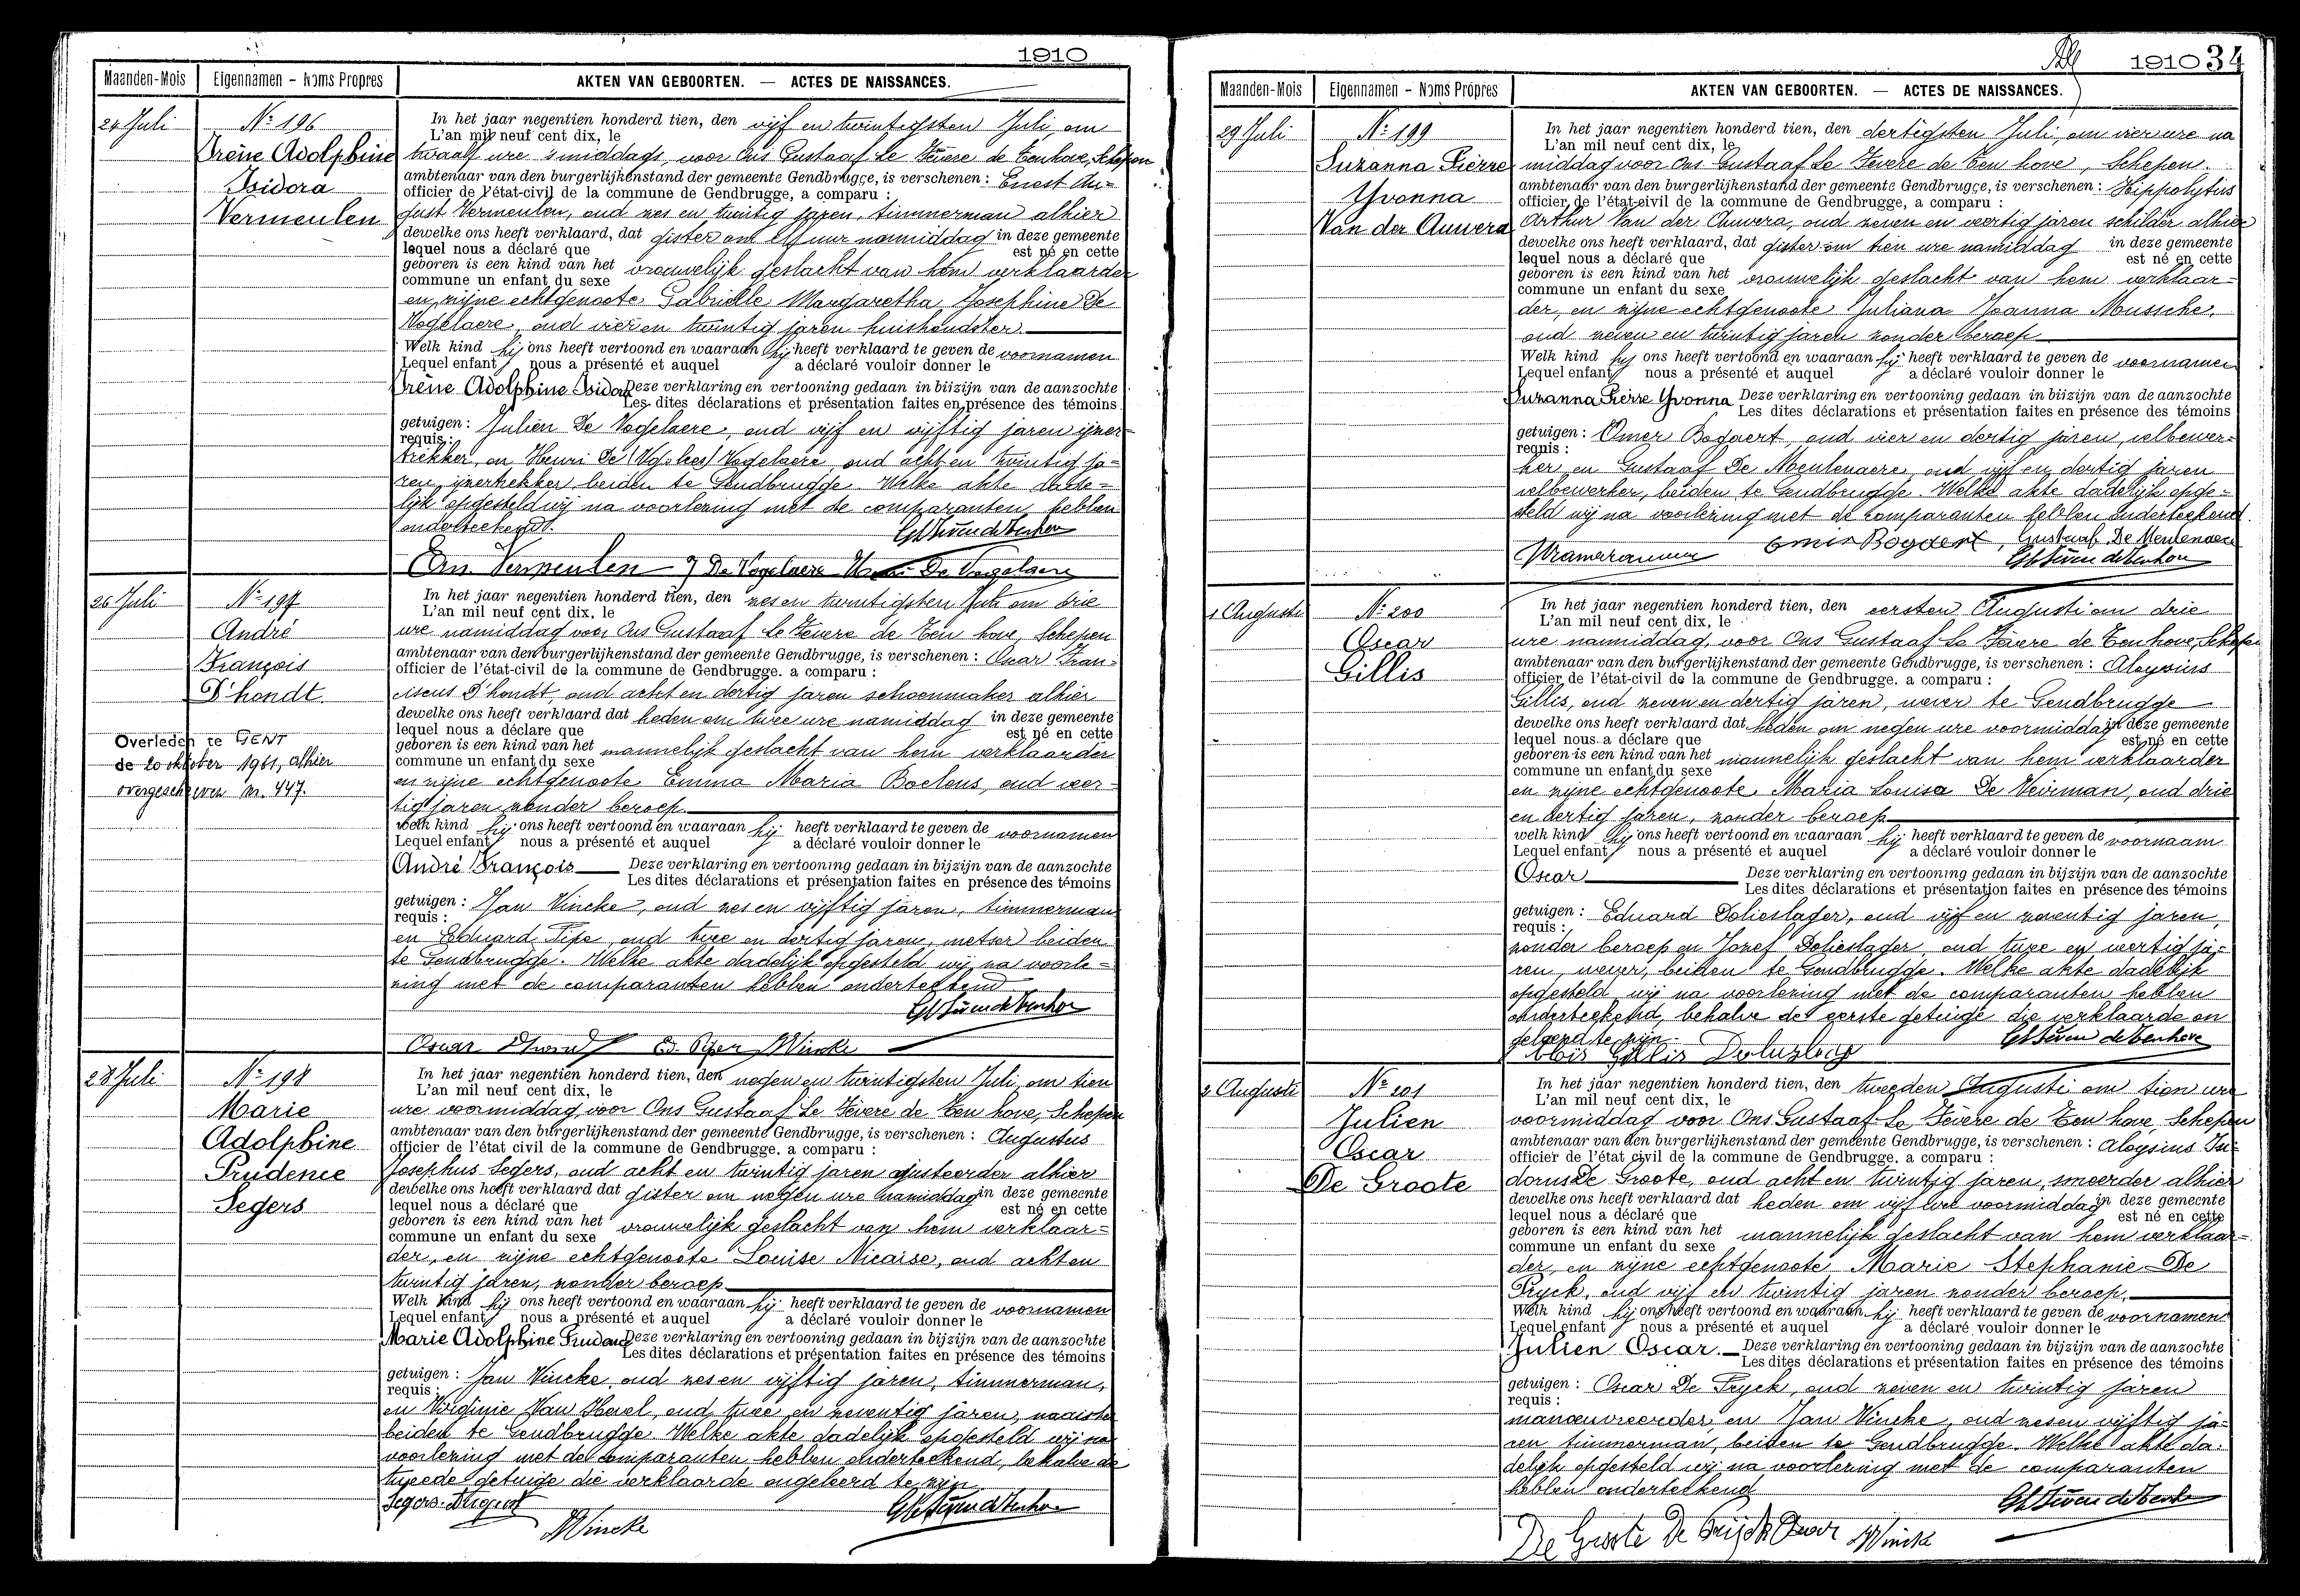 1910
Maanden-Mois Eigennamen - Noms Propres AKTEN VAN GEBOORTEN. — ACTES DE NAISSANCES.
24 Juli
Nº 196
Irène Adolphine
Isidora
Vermeulen
In het jaar negentien honderd tien, den vijf en twintigsten Juli om
L'an mil neuf cent dix, le
twaalf ure 's middags, voor Ons Gustaaf Le Fèvere de Tenhove, Schepen
ambtenaar van den burgerlijkenstand der gemeente Gendbrugge, is verschenen : Ernest Au-
officier de l'état-civil de la commune de Gendbrugge, a comparu :
gust Vermeulen, oud zes en twintig jaren, timmerman alhier
dewelke ons heeft verklaard, dat gister om elf uur namiddag in deze gemeente
lequel nous a déclaré que est né en cette
geboren is een kind van het vrouwelijk geslacht van hem verklaarder
commune un enfant du sexe
en zijne echtgenoote Gabrielle Margaretha Josephine De
Vogelaere, oud vier en twintig jaren huishoudster
Welk kind hij ons heeft vertoond en waaraan hij heeft verklaard te geven de voornamen
Lequel enfant nous a présenté et auquel a déclaré vouloir donner le
Irène Adolphine Isidora Deze verklaring en vertooning gedaan in bijzijn van de aanzochte
Les dites déclarations et présentation faites en présence des témoins
getuigen : Julien De Vogelaere, oud vijf en vijftig jaren ijzer-
requis :
trekker, en Henri De (Vg. lees) Vogelaere, oud acht en twintig ja-
ren, ijzertrekker, beiden te Gendbrugge. Welke akte dade-
lijk opgesteld wij na voorlezing met de comparanten hebben
onderteekend.
Ern. Vermeulen J De Vogelaere Henri De Vogelaere
26 Juli
Nº 197
André
François
D'hondt
Overleden te GENT
de 20 oktober 1961, alhier
overgeschreven nr. 447.
In het jaar negentien honderd tien, den zes en twintigsten Juli om drie
L'an mil neuf cent dix, le
ure namiddag voor Ons Gustaaf Le Fèvere de Ten hove, Schepen
ambtenaar van den burgerlijkenstand der gemeente Gendbrugge, is verschenen : Oscar Fran-
officier de l'état-civil de la commune de Gendbrugge. a comparu :
ciscus D'hondt, oud acht en dertig jaren schoenmaker alhier
dewelke ons heeft verklaard dat heden om twee ure namiddag in deze gemeente
lequel nous a déclare que est né en cette
geboren is een kind van het mannelijk geslacht van hem verklaarder
commune un enfant du sexe
en zijne echtgenoote Emma Maria Boelens, oud veer-
tig jaren zonder beroep
welk kind hij ons heeft vertoond en waaraan hij heeft verklaard te geven de voornamen
Lequel enfant nous a présenté et auquel a déclaré vouloir donner le
André François Deze verklaring en vertooning gedaan in bijzijn van de aanzochte
Les dites déclarations et présentation faites en présence des témoins
getuigen : Jan Vincke, oud zes en vijftig jaren, timmerman
requis :
en Eduard Pipe, oud twee en dertig jaren, metser beiden
te Gendbrugge. Welke akte dadelijk opgesteld wij na voorle-
zing met de comparanten hebben onderteekend
28 Juli
Nº 198
Marie
Adolphine
Prudence
Segers
In het jaar negentien honderd tien, den negen en twintigsten Juli, om tien
L'an mil neuf cent dix, le
ure voormiddag, voor Ons Gustaaf Le Fèvere de Ten hove, Schepen
ambtenaar van den burgerlijkenstand der gemeente Gendbrugge, is verschenen : Augustus
officier de l'état civil de la commune de Gendbrugge. a comparu :
Josephus Segers, oud acht en twintig jaren ajusteerder alhier
dewelke ons heeft verklaard dat gister om negen ure namiddag in deze gemeente
lequel nous a déclaré que est né en cette
geboren is een kind van het vrouwelijk geslacht van hem verklaar-
commune un enfant du sexe
der, en zijne echtgenoote Louise Nicaise, oud acht en
twintig jaren, zonder beroep
Welk kind hij ons heeft vertoond en waaraan hij heeft verklaard te geven de voornamen
Lequel enfant nous a présenté et auquel a déclaré vouloir donner le
Marie Adolphine Prudence Deze verklaring en vertooning gedaan in bijzijn van de aanzochte
Les dites déclarations et présentation faites en présence des témoins
getuigen : Jan Vincke, oud zes en vijftig jaren, timmerman,
requis :
en Virginie Van Hevel, oud twee en zeventig jaren, naaister
beiden te Gendbrugge. Welke akte dadelijk opgesteld wij na
voorlezing met de comparanten hebben onderteekend, behalve de
tweede getuige die verklaarde ongeleerd te zijn
Segers August
JVincke
1910 34
Maanden-Mois Eigennamen - Noms Propres AKTEN VAN GEBOORTEN. — ACTES DE NAISSANCES.
29 Juli
Nº 199
Suzanna Pierre
Yvonna
Van der Auwera
In het jaar negentien honderd tien, den dertigsten Juli, om vier ure na
L'an mil neuf cent dix, le
middag voor Ons Gustaaf Le Fèvere de Ten hove, Schepen
ambtenaar van den burgerlijkenstand der gemeente Gendbrugge, is verschenen : Hippolytus
officier de l'état-civil de la commune de Gendbrugge, a comparu :
Arthur Van der Auwera, oud zeven en veertig jaren schilder alhier
dewelke ons heeft verklaard, dat gister om tien ure namiddag in deze gemeente
lequel nous a déclaré que est né en cette
geboren is een kind van het vrouwelijk geslacht van hem verklaar-
commune un enfant du sexe
der, en zijne echtgenoote Juliana Joanna Mussche,
oud zeven en twintig jaren zonder beroep
Welk kind hij ons heeft vertoond en waaraan hij heeft verklaard te geven de voornamen
Lequel enfant nous a présenté et auquel a déclaré vouloir donner le
Suzanna Pierre Yvonna Deze verklaring en vertooning gedaan in bijzijn van de aanzochte
Les dites déclarations et présentation faites en présence des témoins
getuigen : Omer Bogaert, oud vier en dertig jaren, velbewer-
requis :
ker, en Gustaaf De Meulenaere, oud vijf en dertig jaren
velbewerker, beiden te Gendbrugge. Welke akte dadelijk opge-
steld wij na voorlezing met de comparanten hebben onderteekend.
Omer Bogaert, Gustaaf De Meulenaere
1 Augusti
Nº 200
Oscar
Gillis
In het jaar negentien honderd tien, den eersten Augusti om drie
L'an mil neuf cent dix, le
ure namiddag, voor Ons Gustaaf Le Fèvere de Ten hove, Schepen
ambtenaar van den burgerlijkenstand der gemeente Gendbrugge, is verschenen : Aloysius
officier de l'état-civil de la commune de Gendbrugge. a comparu :
Gillis, oud zeven en dertig jaren, wever te Gendbrugge
dewelke ons heeft verklaard dat heden om negen ure voormiddag in deze gemeente
lequel nous a déclare que est né en cette
geboren is een kind van het mannelijk geslacht van hem verklaarder
commune un enfant du sexe
en zijne echtgenoote Maria Louisa De Veirman, oud drie
en dertig jaren, zonder beroep
welk kind hij ons heeft vertoond en waaraan hij heeft verklaard te geven de voornaam
Lequel enfant nous a présenté et auquel a déclaré vouloir donner le
Oscar Deze verklaring en vertooning gedaan in bijzijn van de aanzochte
Les dites déclarations et présentation faites en présence des témoins
getuigen : Eduard Dolieslager, oud vijf en zeventig jaren,
requis :
zonder beroep en Jozef Dolieslager, oud twee en veertig ja-
ren, wever, beiden te Gendbrugge. Welke akte dadelijk
opgesteld wij na voorlezing met de comparanten hebben
onderteekend, behalve de eerste getuige die verklaarde on
geleerd te zijn.
Aloïs Gillis
2 Augusti
Nº 201
Julien
Oscar
De Groote
In het jaar negentien honderd tien, den tweeden Augusti om tien ure
L'an mil neuf cent dix, le
voormiddag voor Ons Gustaaf Le Fèvere de Ten hove, Schepen
ambtenaar van den burgerlijkenstand der gemeente Gendbrugge, is verschenen : Aloysius Isi-
officier de l'état civil de la commune de Gendbrugge. a comparu :
dorus De Groote, oud acht en twintig jaren, smeerder alhier
dewelke ons heeft verklaard dat heden om vijf ure voormiddag in deze gemeente
lequel nous a déclaré que est né en cette
geboren is een kind van het mannelijk geslacht van hem verklaar-
commune un enfant du sexe
der, en zijne echtgenoote Marie Stephanie De
Pryck, oud vijf en twintig jaren zonder beroep,
Welk kind hij ons heeft vertoond en waaraan hij heeft verklaard te geven de voornamen
Lequel enfant nous a présenté et auquel a déclaré vouloir donner le
Julien Oscar. Deze verklaring en vertooning gedaan in bijzijn van de aanzochte
Les dites déclarations et présentation faites en présence des témoins
getuigen : Oscar De Pryck, oud zeven en twintig jaren
requis :
manœuvreerder, en Jan Vincke, oud zes en vijftig ja-
ren timmerman, beiden te Gendbrugge. Welke akte da-
delijk opgesteld wij na voorlezing met de comparanten
hebben onderteekend
De Groote De Prijck Oscar JVincke